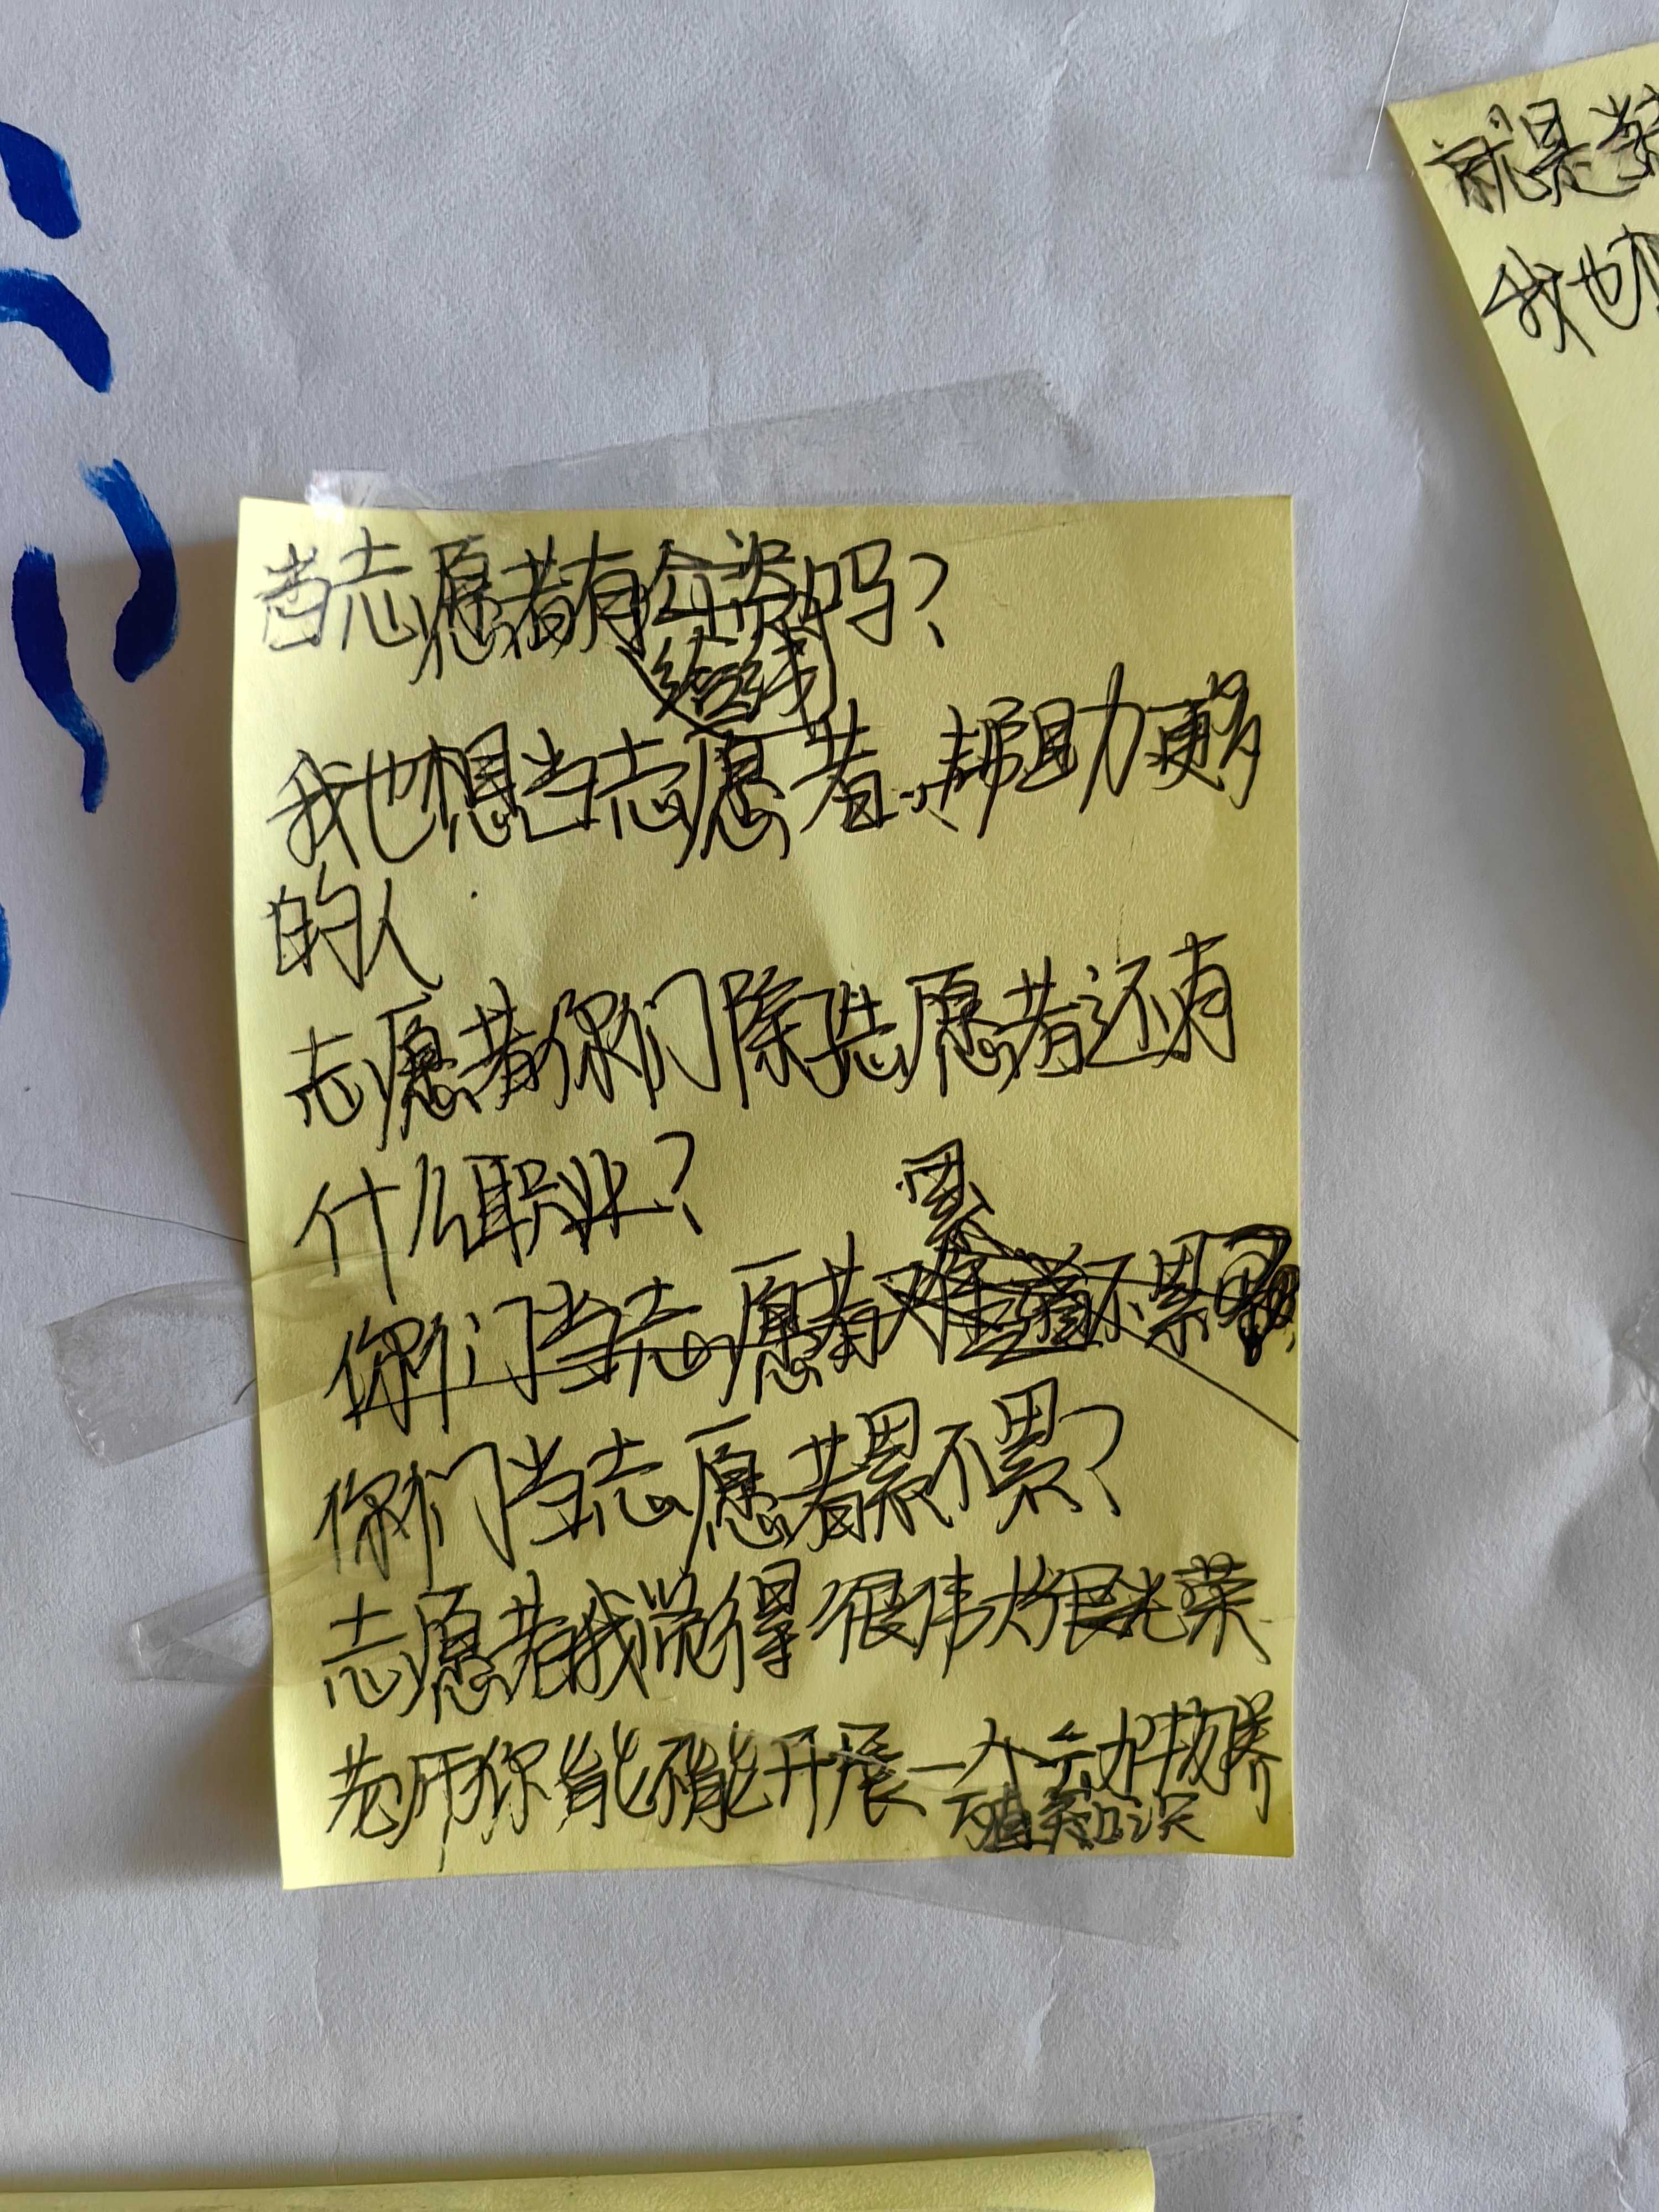 当志愿者有工资吗?
给钱
我也想当志愿者,帮助更多
的人
志愿者你们除了志愿者还有
什么职业?
累
你们当志愿者难道不累
你们当志愿者累不累?
志愿者我觉得很伟大很光荣
老师你能不能开展一个
知识
就是当
我也